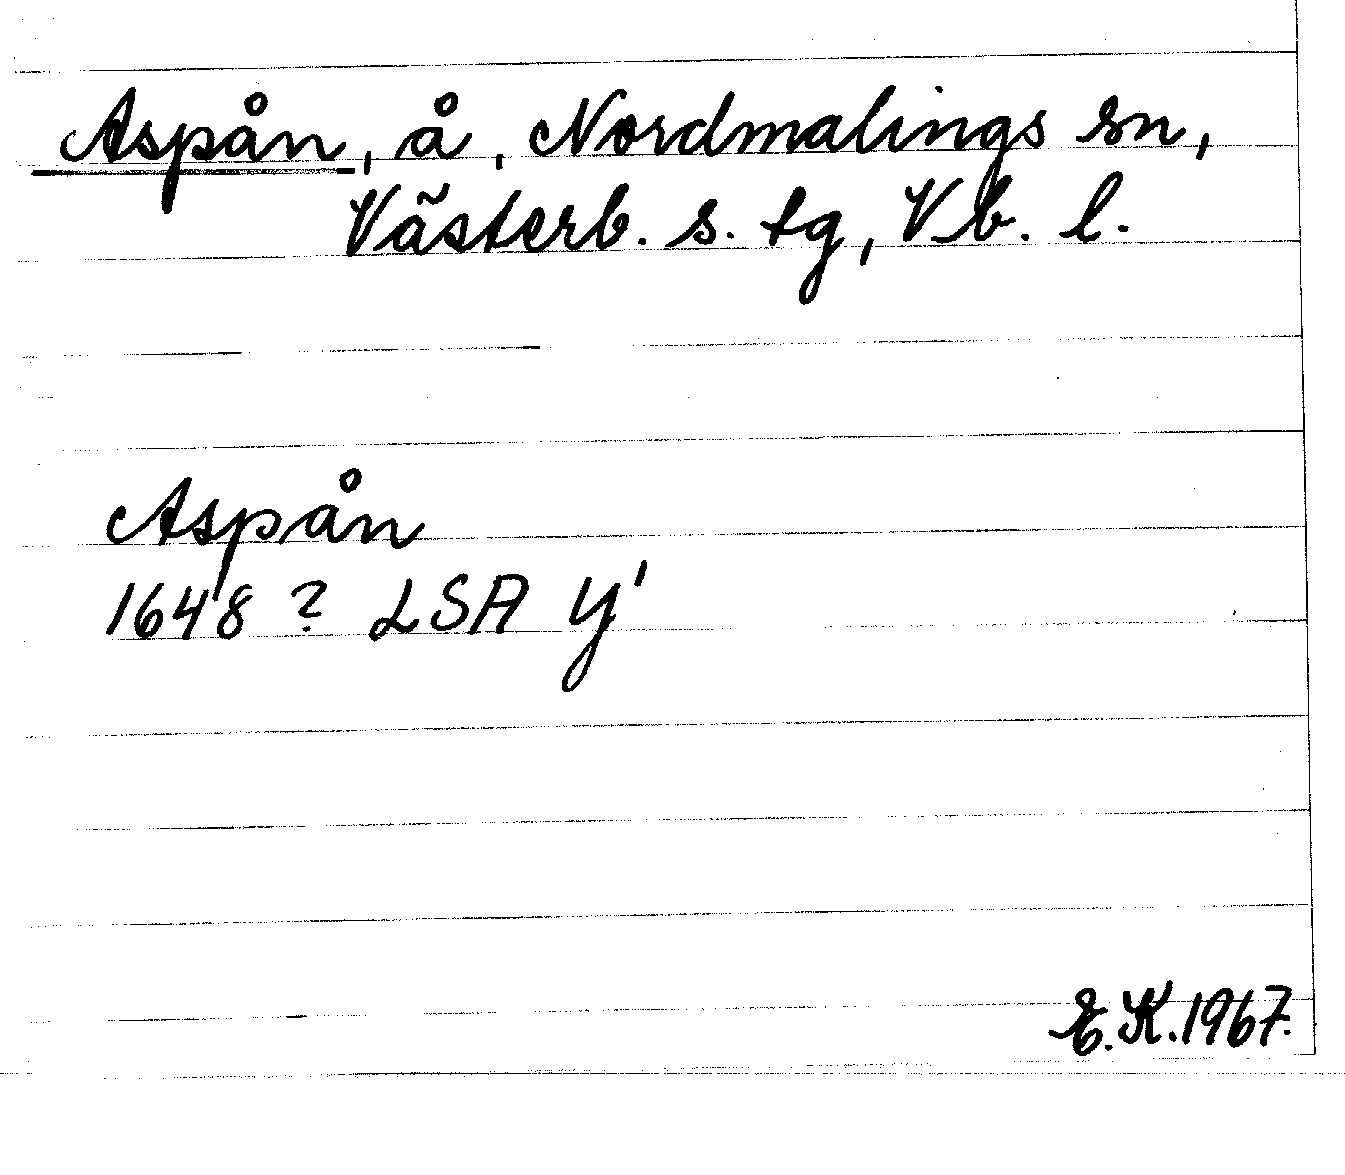 Aspån, å, Nordmalings sn,
Västerb. s. tg, Vb. l.
Aspån
1648 ? LSA Y'
E.K. 1967.